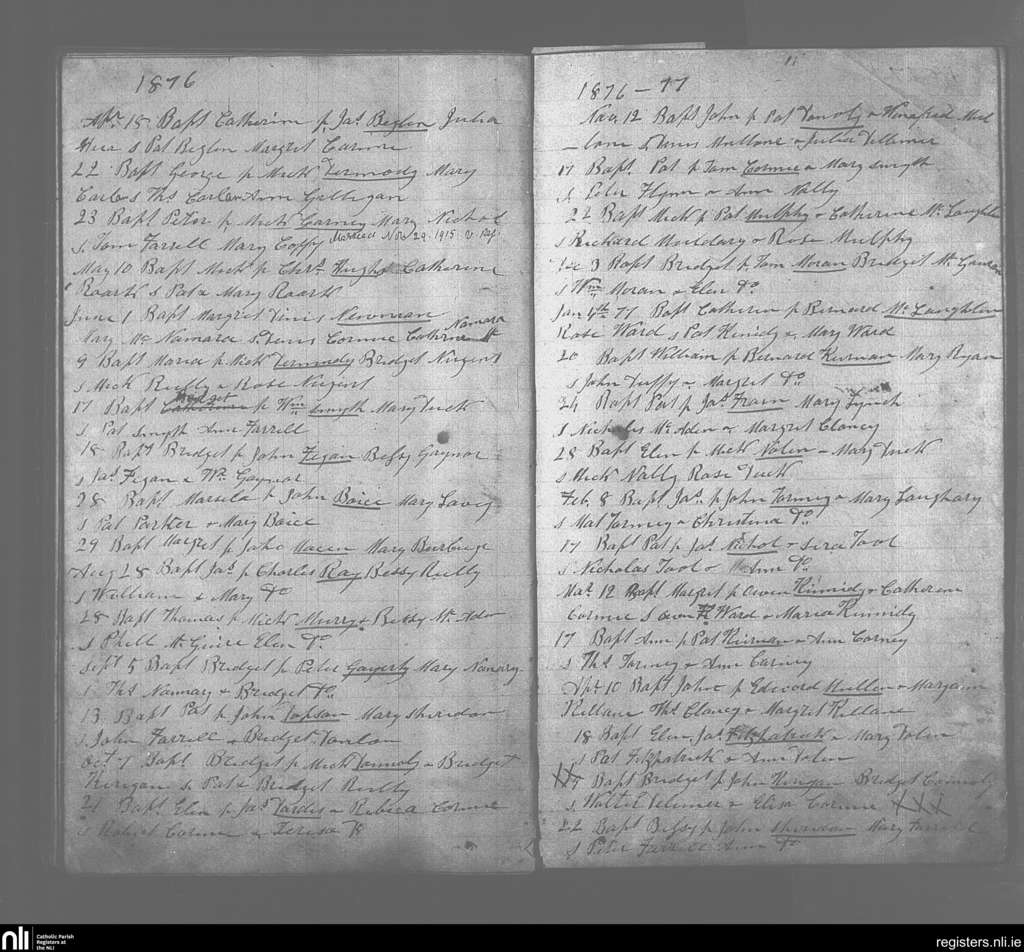 1876
Apr 18 Bapt Catherine p Jas Beglen Julia
Heir s Pat Beglen Margret Carmre
22 Bapt George p Mick Dermody Mary
Carles Ths Carle Ann Gilligan
23 Bapt Peter p Mick Carney Mary Nichol
s Tom Farrell Mary Coffy Married Nov 29. 1915
May 10 Bapt Mick p Chrs Hughs Catherine
Roark s Pat & Mary Roark
June 1 Bapt Margret Dinis Newman
Mary Mc Namara s Denis Cormre Catherine Mc Namara
9 Bapt Maria p Mick Dermody Bridget Nugent
s Mick Reilly & Rose Nugent
17 Bapt Bridget p Wm Smyth Mary Tuck
s Pat Smyth Ann Farrell
18 Bapt Bridget p John Fegan Bessy Gaynor
s Jas Fegan & Mr Gaynor
28 Bapt Marsela p John Boice Mary Lavey
s Pat Parker & Mary Boice
29 Bapt Margret p John Macen Mary Burbuge
Aug 28 Bapt Jas p Charles Ray Bessy Reilly
s William & Mary Do
28 Bapt Thomas p Mick Murry & Bessy Mc Ado
s Phell Mc Guire Elen Do
Sept 5 Bapt Bridget p Peter Gagerty Mary Nanary
s Ths Nannary & Bridget Do
13 Bapt Pat p John Topson Mary Sheridan
s John Farrell & Bridget Donlon
Oct 7 Bapt Bridget p Mick Connoly & Bridget
Kerigan s Pat & Bridget Reilly
21 Bapt Elen p Jas Dardis & Rebeca Cormre
s Robert Cormre & Teresa
1876-77
Nov 12 Bapt John p Pat & Winefred Mul
-lone s Denis Mullone & Julia Delimer
17 Bapt Pat p Tom Cormre & Mary Smyth
s Peter Flynn & Ann Nally
22 Bapt Mick p Pat Mulphy & Catherine Mc Laughlin
s Rickard Muldary & Rose Mulphy
Dec 3 Bapt Bridget p Tom Moran Bridget Mc Gauran
s Wm Moran & Elen Do
Jan 4th 77 Bapt Catherin p Bernard Mc Laughlin
Rose Ward s Pat Kenidy & Mary Ward
20 Bapt William p Bernard Kiernan Mary Ryan
s John Duffy & Margret Do
24 Bapt Pat p Jas Frain Mary Lynch
s Nicholas Mc Aden & Margret Clancy
28 Bapt Elen p Mick Nolen & Mary Tuck
s Mick Nally Rose Tuck
Feb 8 Bapt Jas p John Tormey & Mary Loughary
s Mat Tormey & Christina Do
17 Bapt Pat p Jas Nichol & Sera Tool
s Nicholas Tool & Ann Do
Mar 12 Bapt Margret p Owen Kinnidy & Catheren
Cormre s Owen Ward & Maria Kinnidy
17 Bapt Ann p Pat Kiernan & Ann Carney
s Ths Tormey & Ann Carney
Apr 10 Bapt John p Edword Mullen & Maryann
Killane Ths Clancy & Margret Killane
18 Bapt Elen Jas Fitzpatrick & Mary Dolen
s Pat Fitzpatrick & Ann Dolen
Bapt Bridget p John Kerigan Bridget Connoly
s Walter Delimer & Elisa Cormre XXX
22 Bapt Bessy p John Sheridan Mary Farrell
s Peter Farrell Ann Do
nli
Catholic Parish
Registers at
the NLI
registers.nli.ie